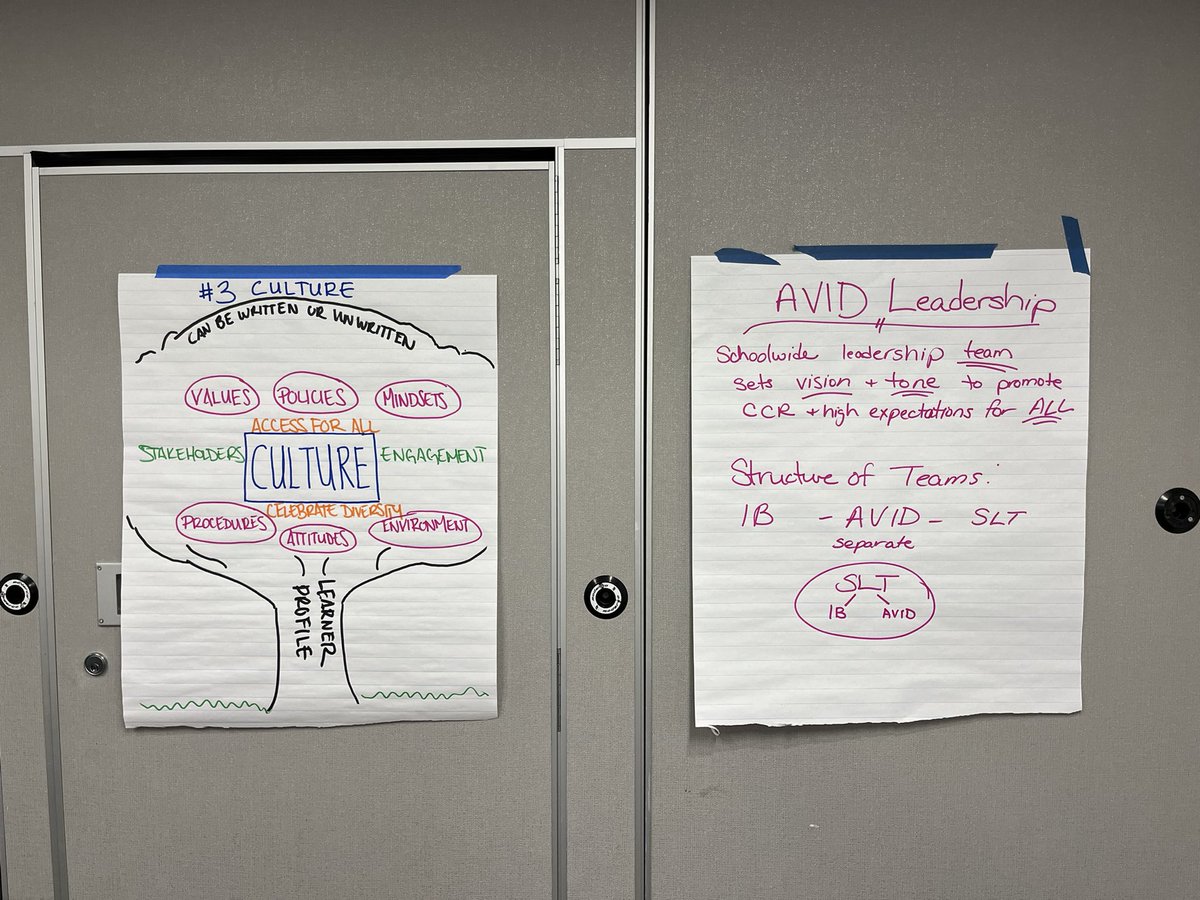 #3 CULTURE
CAN BE WRITTEN OR UNWRITTEN
VALUES POLICIES MINDSETS
ACCESS FOR ALL
STAKEHOLDERS CULTURE ENGAGEMENT
CELEBRATE DIVERSITY
PROCEDURES ATTITUDES ENVIRONMENT
LEARNER
PROFILE
AVID Leadership
Schoolwide leadership team
sets vision + tone to promote
CCR + high expectations for ALL
Structure of Teams:
IB - AVID - SLT
separate
SLT
IB AVID